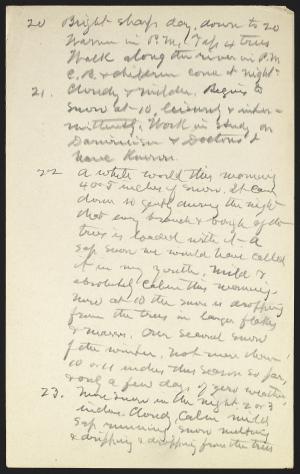 20 Bright sharp day, down to 20
Warmer in P.M. Tap 4 trees
Walk along the river in P.M.
C.B. & children come at night.
21. Cloudy & milder. Begins to
snow at 10, leisurely & inter-
mittently. Work in study on
Darwinism & Doctors I
have Known.
22 A white world this morning
4 or 5 inches of snow. It came
down so gently during the night
that every branch & bough of the
trees is loaded with it — a
sap snow we would have called
it in my youth. Mild &
absolutely calm this morning.
Now at 10 the snow is dropping
from the trees in larger flakes
& masses. Our second snow
of the winter. Not more than
10 or 11 inches this season so far,
& only a few days of zero weather
23. More snow in the night 2 or 3
inches. Cloudy, calm, mild,
sap running, snow melting
& dripping & dropping from the trees